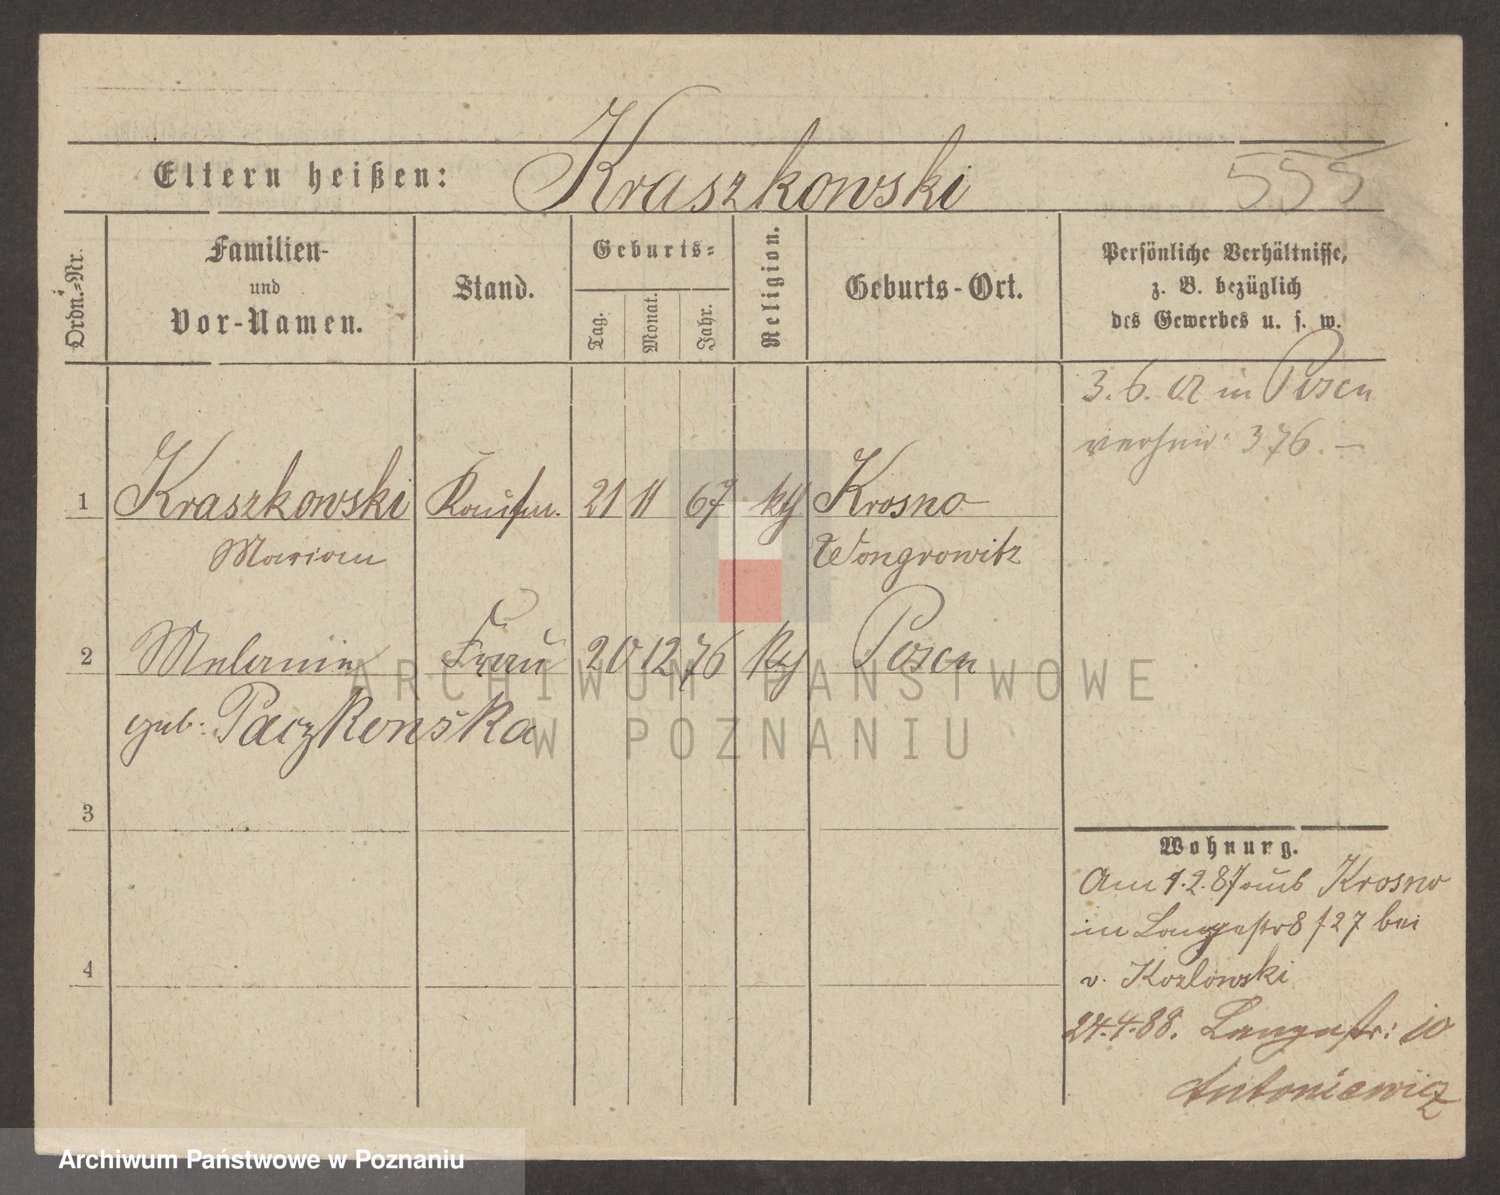 Eltern heißen: Kraszkowski 555
Ordn.-Nr.
Familien-
und
Vor-Namen.
Stand.
Geburts-
Tag.
Monat.
Jahr.
Religion.
Geburts-Ort.
Persönliche Verhältnisse,
z. B. bezüglich
des Gewerbes u. s. w.
3. 6. in Posen
376. —
1 Kraszkowski Kaufm. 21 11 67 Krosno
Marian Wongrowitz
2 Melanie Frau 20 12 76 Posen
geb: Paczkowska
3
4
Wohnung.
Am 1.2.87 aus Krosno
in Langestr 8 27 bei
v. Kozlowski
24.4.88. Langestr: 10
Antoniewicz
ARCHIWUM PAŃSTWOWE
W POZNANIU
Archiwum Państwowe w Poznaniu